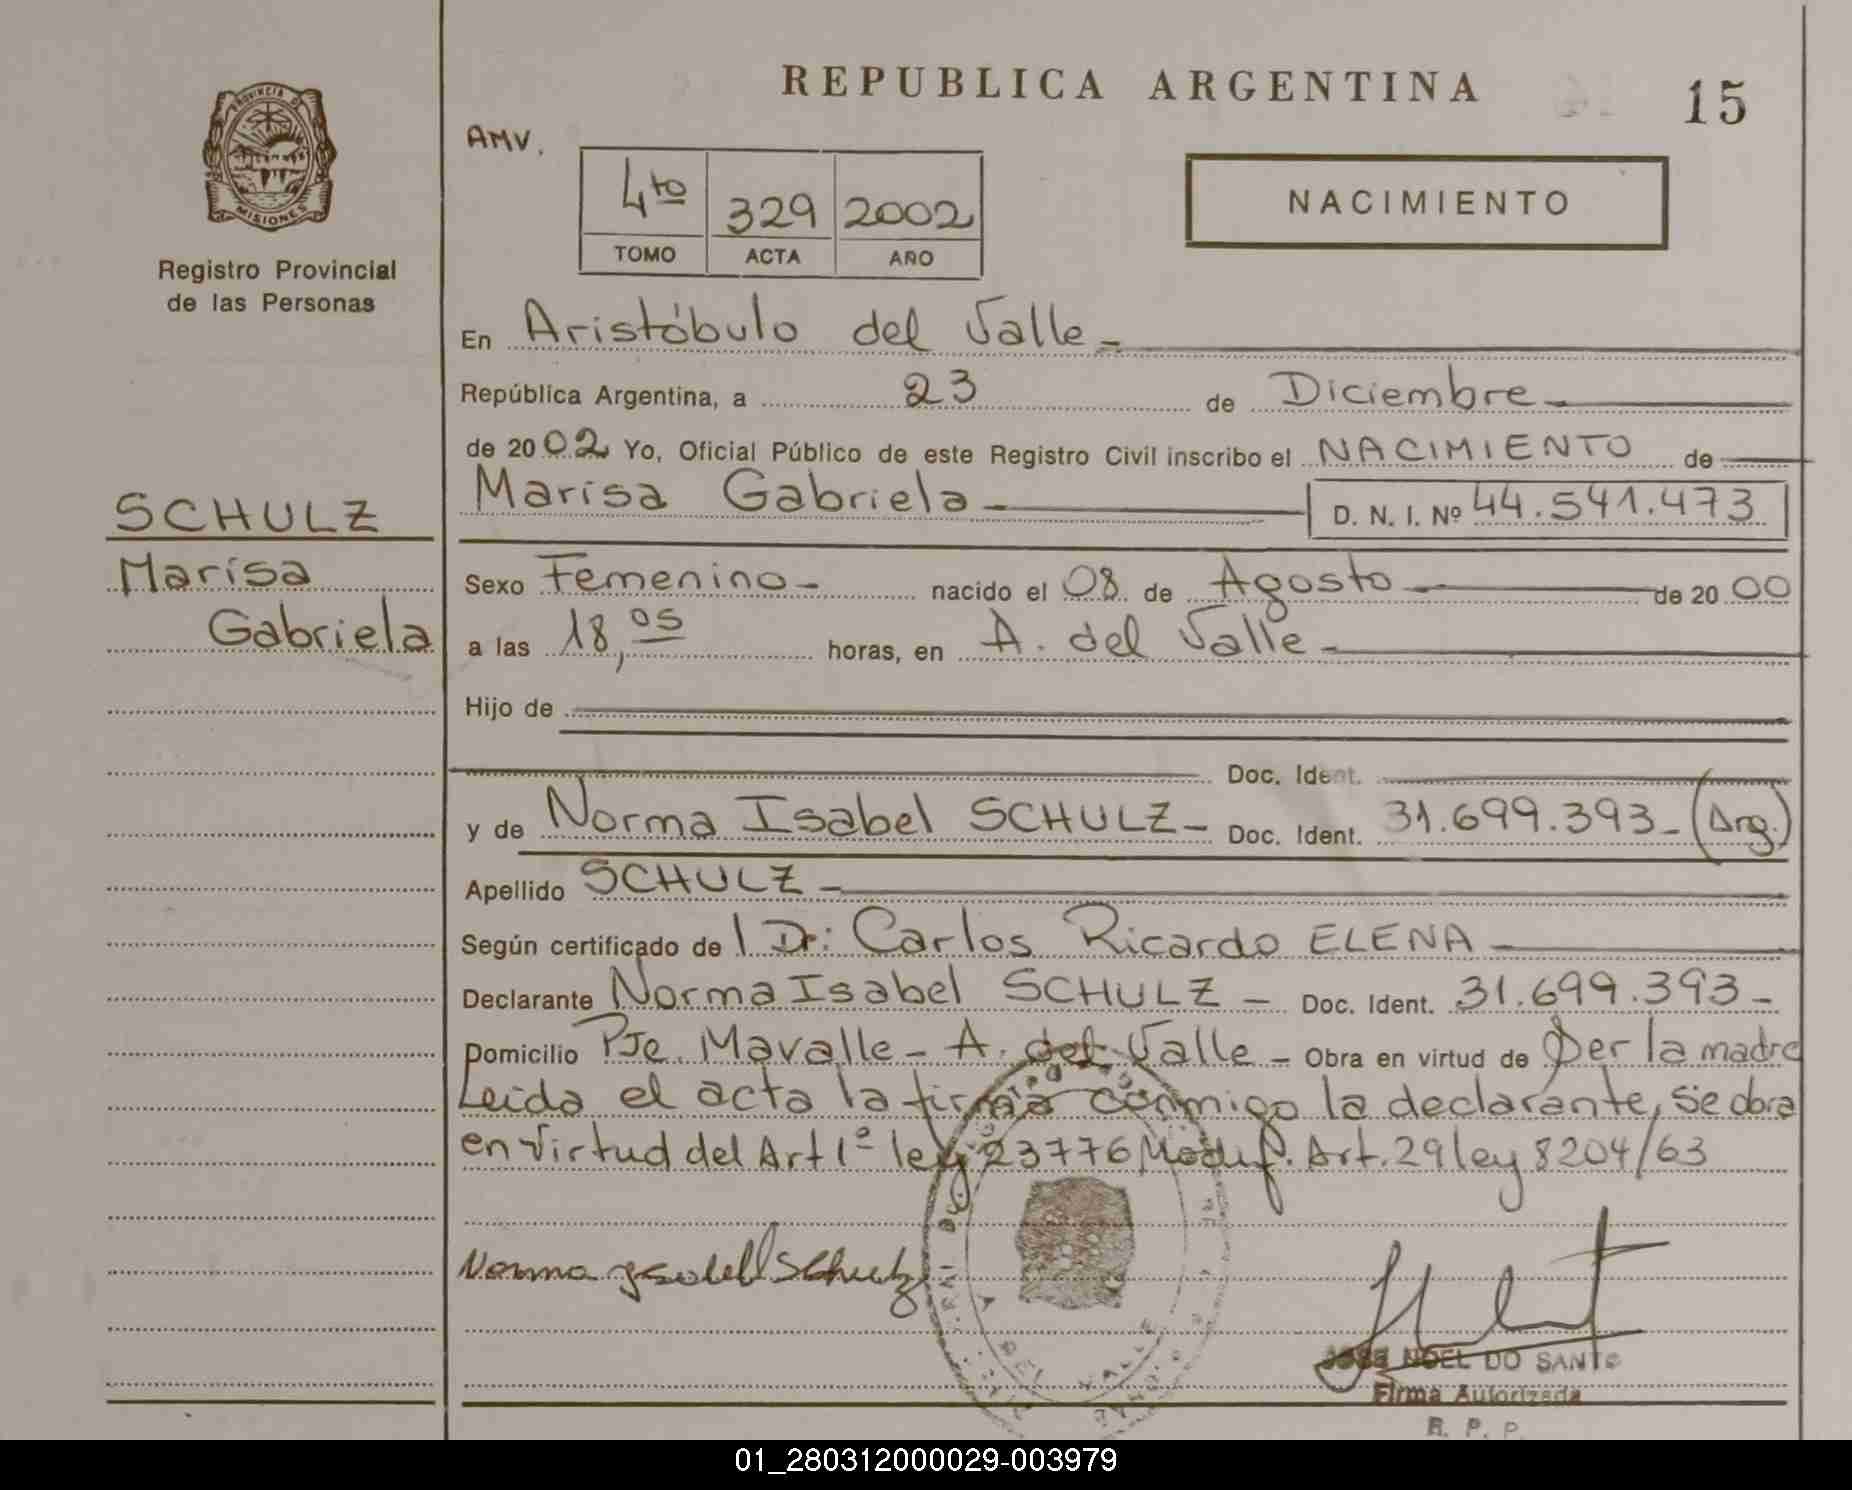 REPUBLICA ARGENTINA
15
PROVINCIA DE
MISIONES
Registro Provincial
de las Personas
AMV.
4to 329 2002
TOMO ACTA AÑO
NACIMIENTO
En Aristóbulo del Valle
República Argentina, a 23 de Diciembre
de 2002 Yo, Oficial Público de este Registro Civil inscribo el NACIMIENTO de
Marisa Gabriela D. N. I. Nº 44.541.473
SCHULZ
Marisa
Gabriela
Sexo Femenino nacido el 08 de Agosto de 2000
a las 18,05 horas, en A. del Valle
Hijo de
Doc. Ident.
y de Norma Isabel SCHULZ Doc. Ident. 31.699.393 (Arg.)
Apellido SCHULZ
Según certificado de Dr: Carlos Ricardo ELENA
Declarante Norma Isabel SCHULZ Doc. Ident. 31.699.393
Domicilio Pje. Mavalle - A. del Valle - Obra en virtud de Ser la madre
Leida el acta la firma conmigo la declarante, se obra
en virtud del Art 1º ley 23776 Modif. Art. 29 ley 8204/63
Norma Isabel Schulz
JOSE NOEL DO SANTO
Firma Autorizada
R. P. P.
01_280312000029-003979